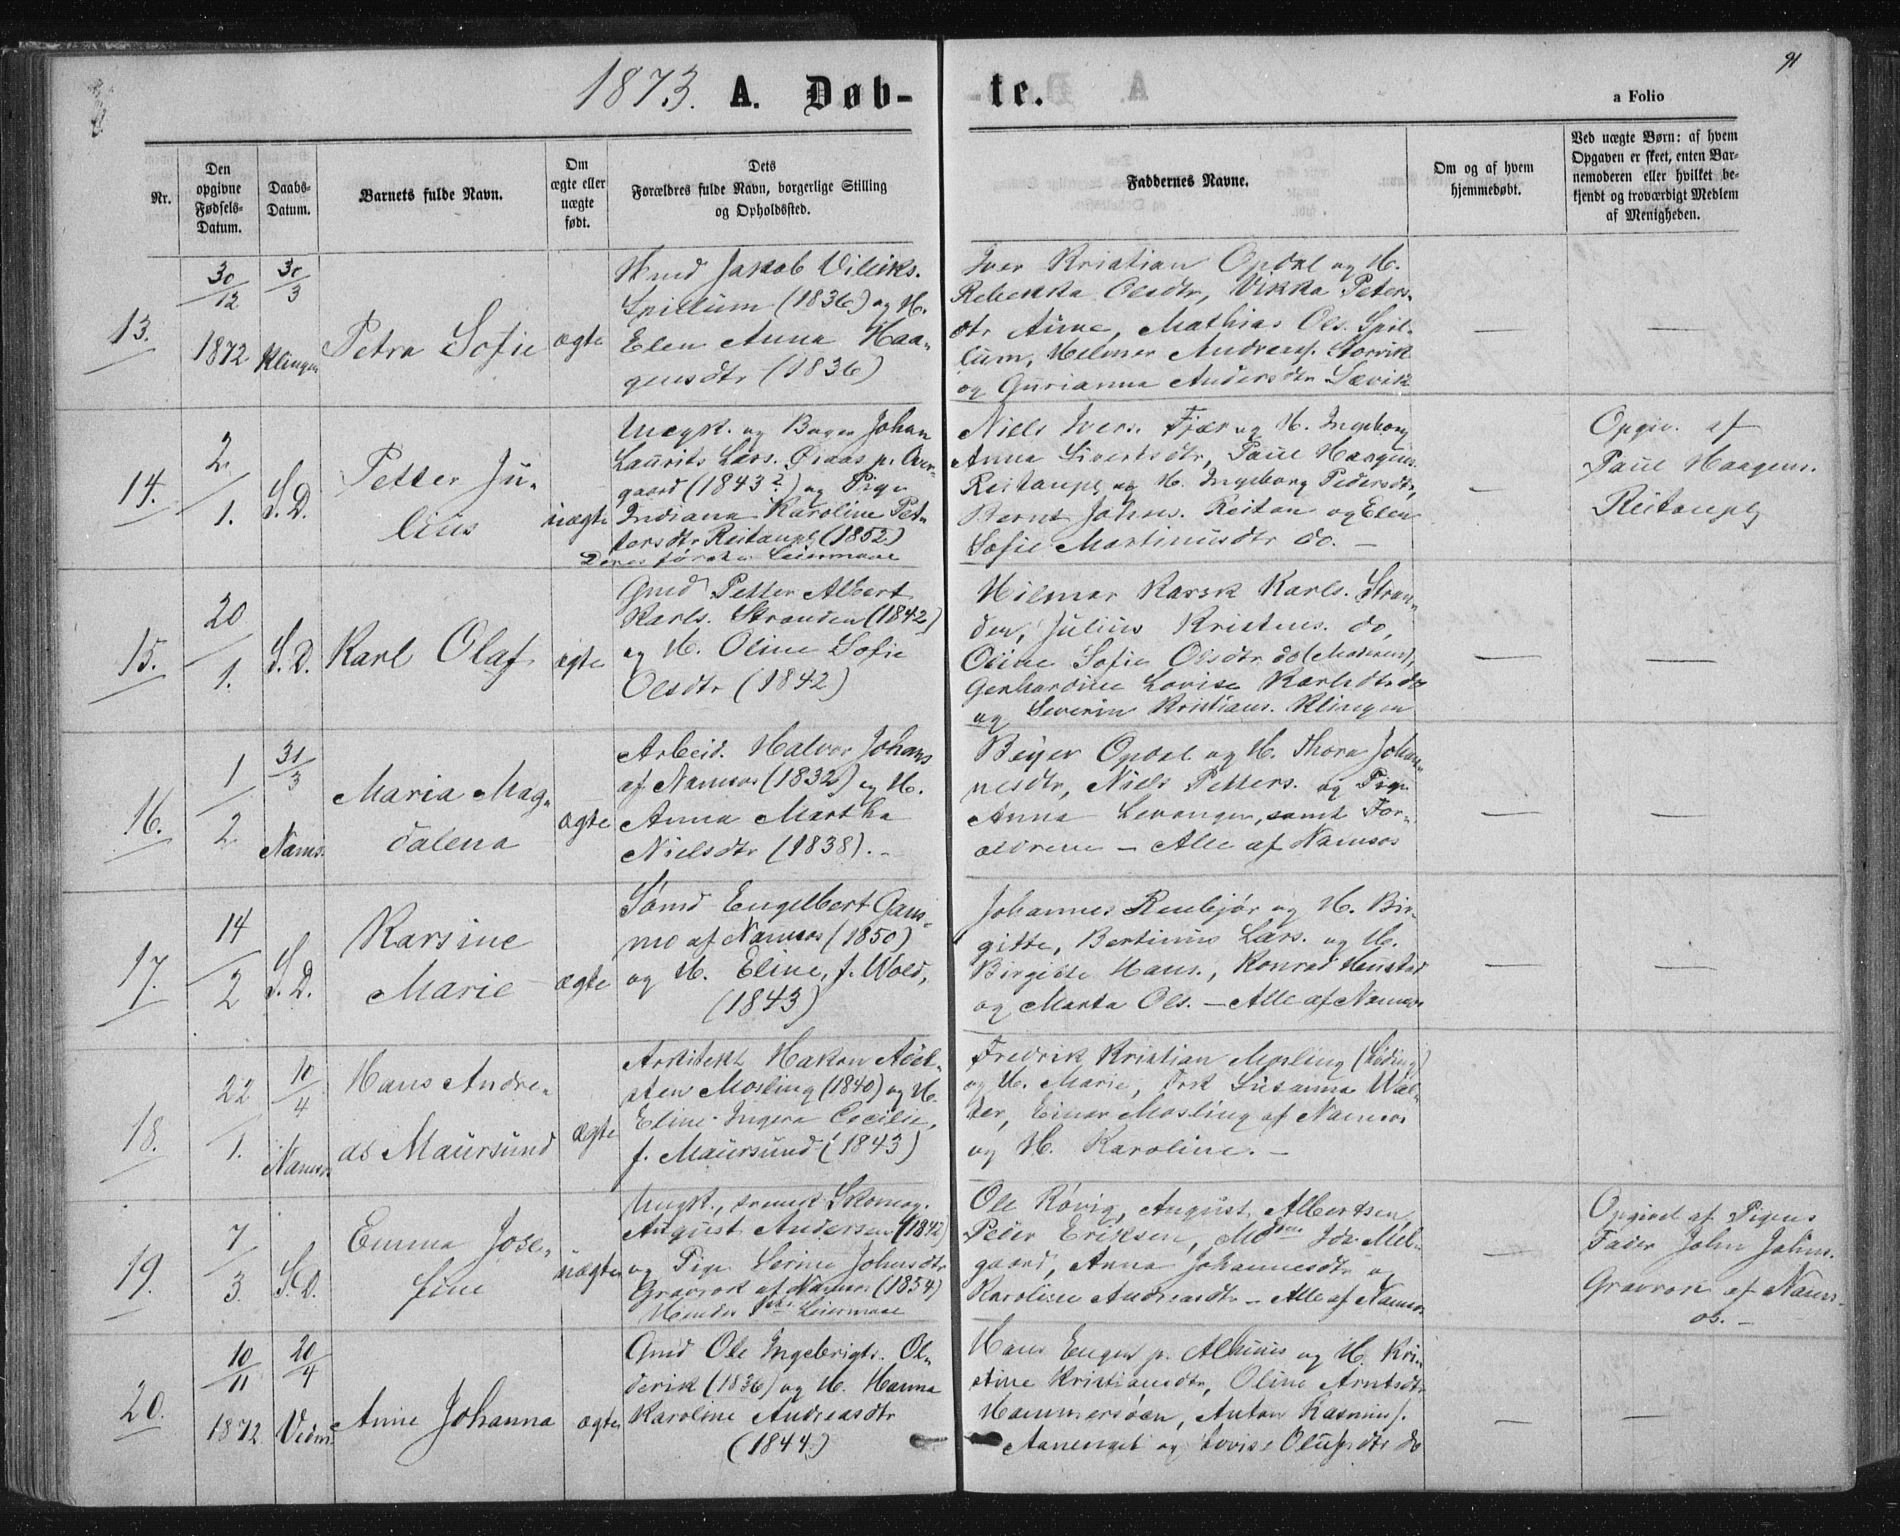 1873. A. Døb-te.
91
a Folio
Nr.
Den opgivne Fødsels-Datum.
Daabs-Datum.
Barnets fulde Navn.
Om ægte eller uægte født.
Dets Forældres fulde Navn, borgerlige Stilling og Opholdssted.
Faddernes Navne.
Om og af hvem hjemmedøbt.
Ved uægte Børn: af hvem Opgaven er skeet, enten Barnemoderen eller hvilket bekjendt og troværdigt Medlem af Menigheden.
13.
30/12 1872
30/3 Klingen
Petra Sofie
ægte
Jakob Vilriks.
Spillum (1836) og H.
Elen Anna Haa-
gensdtr (1836)
Iver Kristian Opdal og H.
Rebekka Olsdtr, Vikka Peters-
dtr Aune, Mathias Ols. Spil-
lum, Helmer Andreas. Storvik
og Gurianna Andersdtr Sævik
14.
2/1.
S. D.
Petter Ju-
lius
uægte
Ungk. og Bager Johan
Laurits Lars. Øraas p. Over-
gaard (1843?) og Pige
Indiana Karoline Pet-
tersdtr Reitanpl. (1852)
Deres første Leiermaal
Niels Ivers. Fjær og H. Ingeborg
Anna Sivertsdtr, Paul Haagens.
Reitanpl. og H. Ingeborg Pedersdtr,
Bernt Johns. Reitan og Elen
Sofie Martinusdtr do. —
Opgiv. af
Paul Haagens.
Reitanpl.
15.
20/1.
S. D.
Karl Olaf
ægte
Gmd Petter Albert
Karls. Stranden (1842)
og H. Oline Sofie
Olsdtr (1842)
Hilmar Karsk Karls. Stran-
den, Julius Kristens. do,
Oline Sofie Olsdtr do (Moderen),
Gerhardine Lovise Karlsdtr do
og Severin Kristians. Klingen
16.
1/2
31/3 Nams.
Maria Mag-
dalena
ægte
Arbeid. Halvor Johans
af Namsos (1832) og H.
Anna Martha
Nielsdtr (1838).-
Beyer Opdal og H. Thora Johan-
nesdtr, Niels Petters. og Pige
Anna Levanger, samt For-
ældrene — Alle af Namsos
17.
14/2
S. D.
Karsine
Marie
ægte
Sømd Engelbert Gans-
mo af Namsos (1850)
og H. Eline, f. Wold,
(1843)
Johannes Reinbjør og H. Bir-
gitte, Bertinius Lars. og H.
Birgitte Hans., Konrad Hustad
og Marta Ols. — Alle af Namsos
18.
22/1.
10/4 Namsos
Hans Andre-
as Maursund
ægte
Arkitekt Hakon Adel-
sten Mosling (1840) og H.
Eline Ingera Cecilie,
f. Maursund (1843)
Fredrik Kristian Mosling (Løding)
og H. Marie, Frk Susanna Wal-
der, Einar Mosling af Namsos
og H. Karoline. —
19.
7/3.
S. D.
Emma Jose-
fine
uægte
Ungk., svensk Skomag.
August Andersen (1842)
og Pige Serine Johnsdtr
Gravrok af Namsos (1854)
Hendes 1ste Leiermaal
Ole Rövig, August Albertsen,
Peder Eriksen, Mdme Mel-
gaard, Anna Johannesdtr og
Karoline Andreasdtr — Alle af Namsos
Opgivet af Pigens
Fader John Johns.
Gravrok af Nams-
os. —
20.
10/11 1872
20/4
Anne Johanna
ægte
Gmd Ole Ingebrigts. Ol-
derik (1836) og H. Hanna
Karoline Andreasdtr
(1844)
Hans p. Alhuus og H. Kri-
stine Kristiansdtr, Oline Arntsdtr
Hammersøen, Anton Rasmus.
Aanenget og Lovise Olufsdtr do